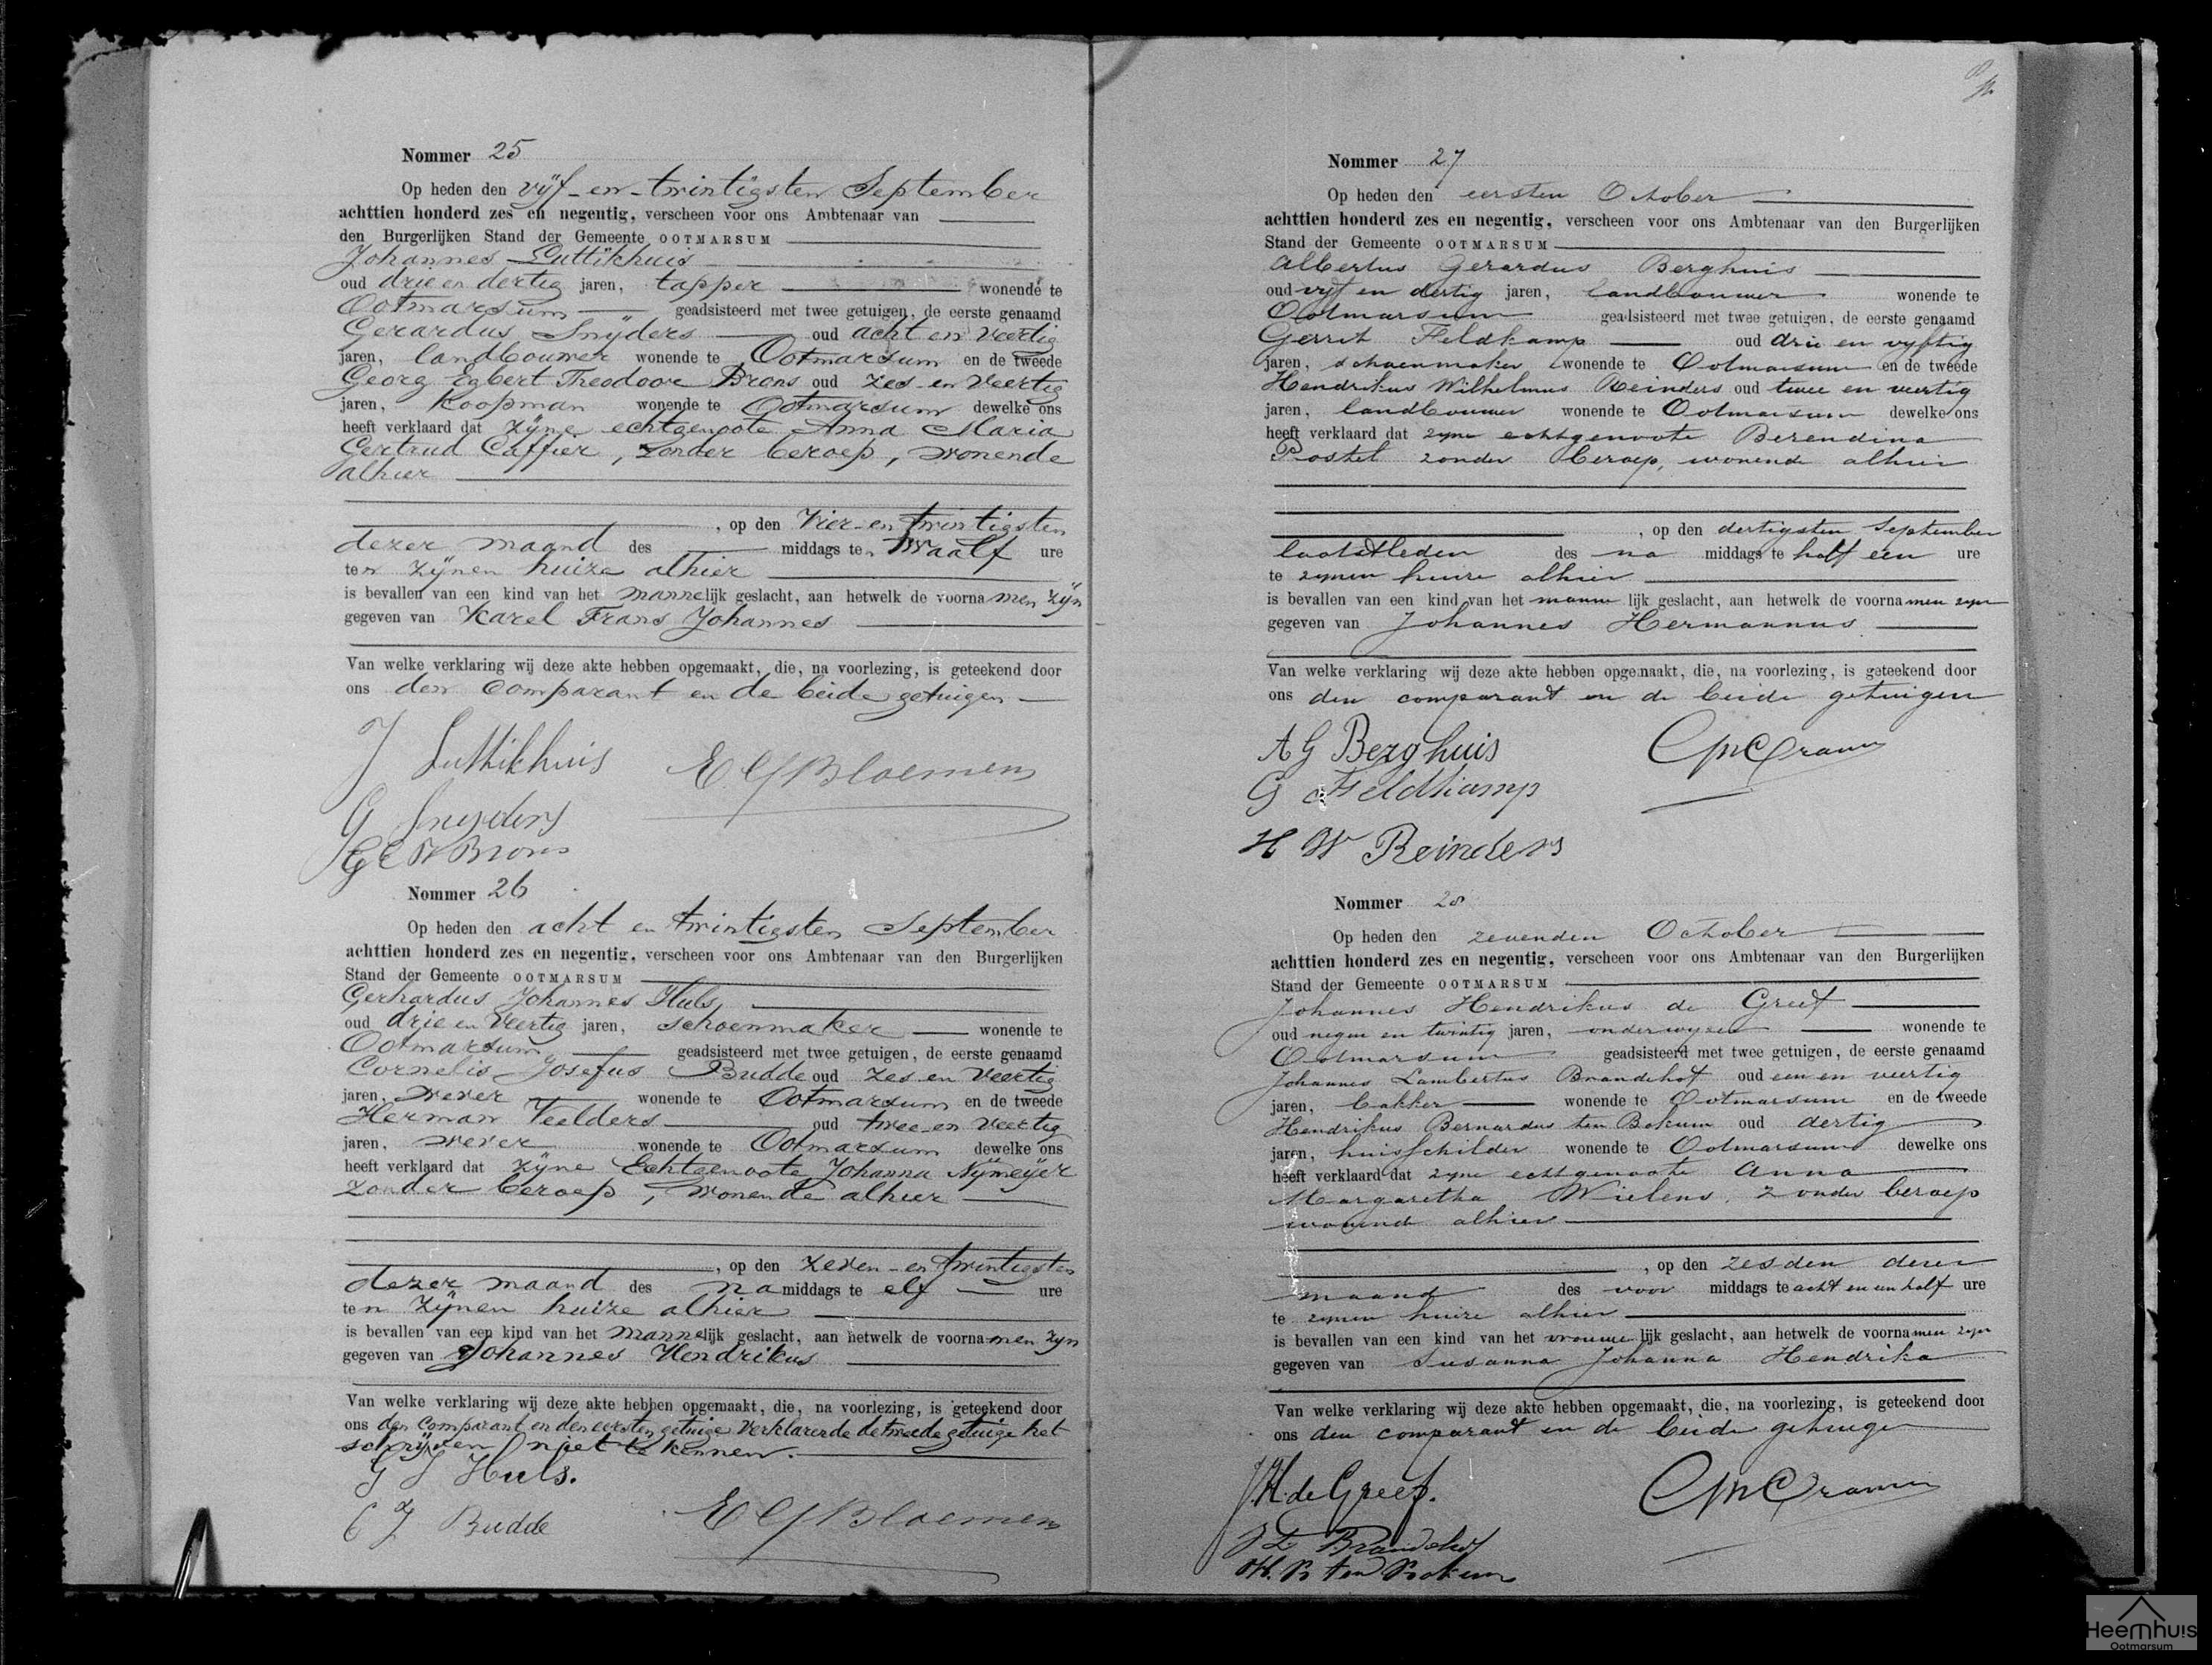 Nommer 25
Op heden den vijf-en-twintigsten September
achttien honderd zes en negentig, verscheen voor ons Ambtenaar van
den Burgerlijken Stand der Gemeente OOTMARSUM
Johannes Luttikhuis
oud drie en dertig jaren, tapper wonende te
Ootmarsum geadsisteerd met twee getuigen, de eerste genaamd
Gerardus Snijders oud acht en veertig
jaren, landbouwer wonende te Ootmarsum en de tweede
Georg Egbert Theodoor Brons oud zes en veertig
jaren, Koopman wonende te Ootmarsum dewelke ons
heeft verklaard dat zijne echtgenoote Anna Maria
Gertrud Caffier, zonder beroep, wonende
alhier
, op den vier-en twintigsten
dezer maand des middags ten twaalf ure
ten zijnen huize alhier
is bevallen van een kind van het mannelijk geslacht, aan hetwelk de voornamen zijn
gegeven van Karel Frans Johannes
Van welke verklaring wij deze akte hebben opgemaakt, die, na voorlezing, is geteekend door
ons den comparant en de beide getuigen
J Luttikhuis
E C J Bloemen
G Snyders
G E T Brons
Nommer 26
Op heden den acht en twintigsten September
achttien honderd zes en negentig, verscheen voor ons Ambtenaar van den Burgerlijken
Stand der Gemeente OOTMARSUM
Gerhardus Johannes Huls,
oud drie en veertig jaren, schoenmaker wonende te
Ootmarsum geadsisteerd met twee getuigen, de eerste genaamd
Cornelis Josefus Budde oud zes en veertig
jaren, wever wonende te Ootmarsum en de tweede
Herman Veelders oud twee en veertig
jaren, wever wonende te Ootmarsum dewelke ons
heeft verklaard dat zijne Echtgenoote Johanna Nijmeijer
zonder beroep, wonende alhier
, op den zeven-en twintigsten
dezer maand des na middags te elf ure
ten zijnen huize alhier
is bevallen van een kind van het mannelijk geslacht, aan hetwelk de voornamen zijn
gegeven van Johannes Hendrikus
Van welke verklaring wij deze akte hebben opgemaakt, die, na voorlezing, is geteekend door
ons den comparant en den eersten getuige verklarende de tweede getuige het
schrijven niet te kennen.
G J Huls.
C J Budde
E C J Bloemen
Nommer 27
Op heden den eersten October
achttien honderd zes en negentig, verscheen voor ons Ambtenaar van den Burgerlijken
Stand der Gemeente OOTMARSUM
Albertus Gerardus Berghuis
oud vijf en dertig jaren, landbouwer wonende te
Ootmarsum geadsisteerd met twee getuigen, de eerste genaamd
Gerrit Feldkamp oud drie en vyftig
jaren, schoenmaker wonende te Ootmarsum en de tweede
Hendrikus Wilhelmus Reinders oud twee en veertig
jaren, landbouwer wonende te Ootmarsum dewelke ons
heeft verklaard dat zyne echtgenoote Berendina
Postel zonder beroep, wonende alhier
, op den dertigsten September
laatstleden des na middags te half een ure
te zynen huize alhier
is bevallen van een kind van het mannelijk geslacht, aan hetwelk de voornamen zyn
gegeven van Johannes Hermannus
Van welke verklaring wij deze akte hebben opgemaakt, die, na voorlezing, is geteekend door
ons den comparant en de beide getuigen
A G Berghuis
G Feldkamp
H W Reinders
Nommer 28
Op heden den zevenden October
achttien honderd zes en negentig, verscheen voor ons Ambtenaar van den Burgerlijken
Stand der Gemeente OOTMARSUM
Johannes Hendrikus de Greef
oud negen en twintig jaren, onderwyzer wonende te
Ootmarsum geadsisteerd met twee getuigen, de eerste genaamd
Johannes Lambertus Brandehof oud een en veertig
jaren, bakker wonende te Ootmarsum en de tweede
Hendrikus Bernardus ten Bokum oud dertig
jaren, huisschilder wonende te Ootmarsum dewelke ons
heeft verklaard dat zyne echtgenoote Anna
Margaretha Wielens, zonder beroep
wonend alhier
, op den zesden dezer
maand des voor middags te acht en een half ure
te zynen huize alhier
is bevallen van een kind van het vrouwelijk geslacht, aan hetwelk de voornamen zyn
gegeven van Susanna Johanna Hendrika
Van welke verklaring wij deze akte hebben opgemaakt, die, na voorlezing, is geteekend door
ons den comparant en de beide getuigen
J.H. de Greef.
J L Brandehof
H. B ten Bokum
Heemhuis
Ootmarsum